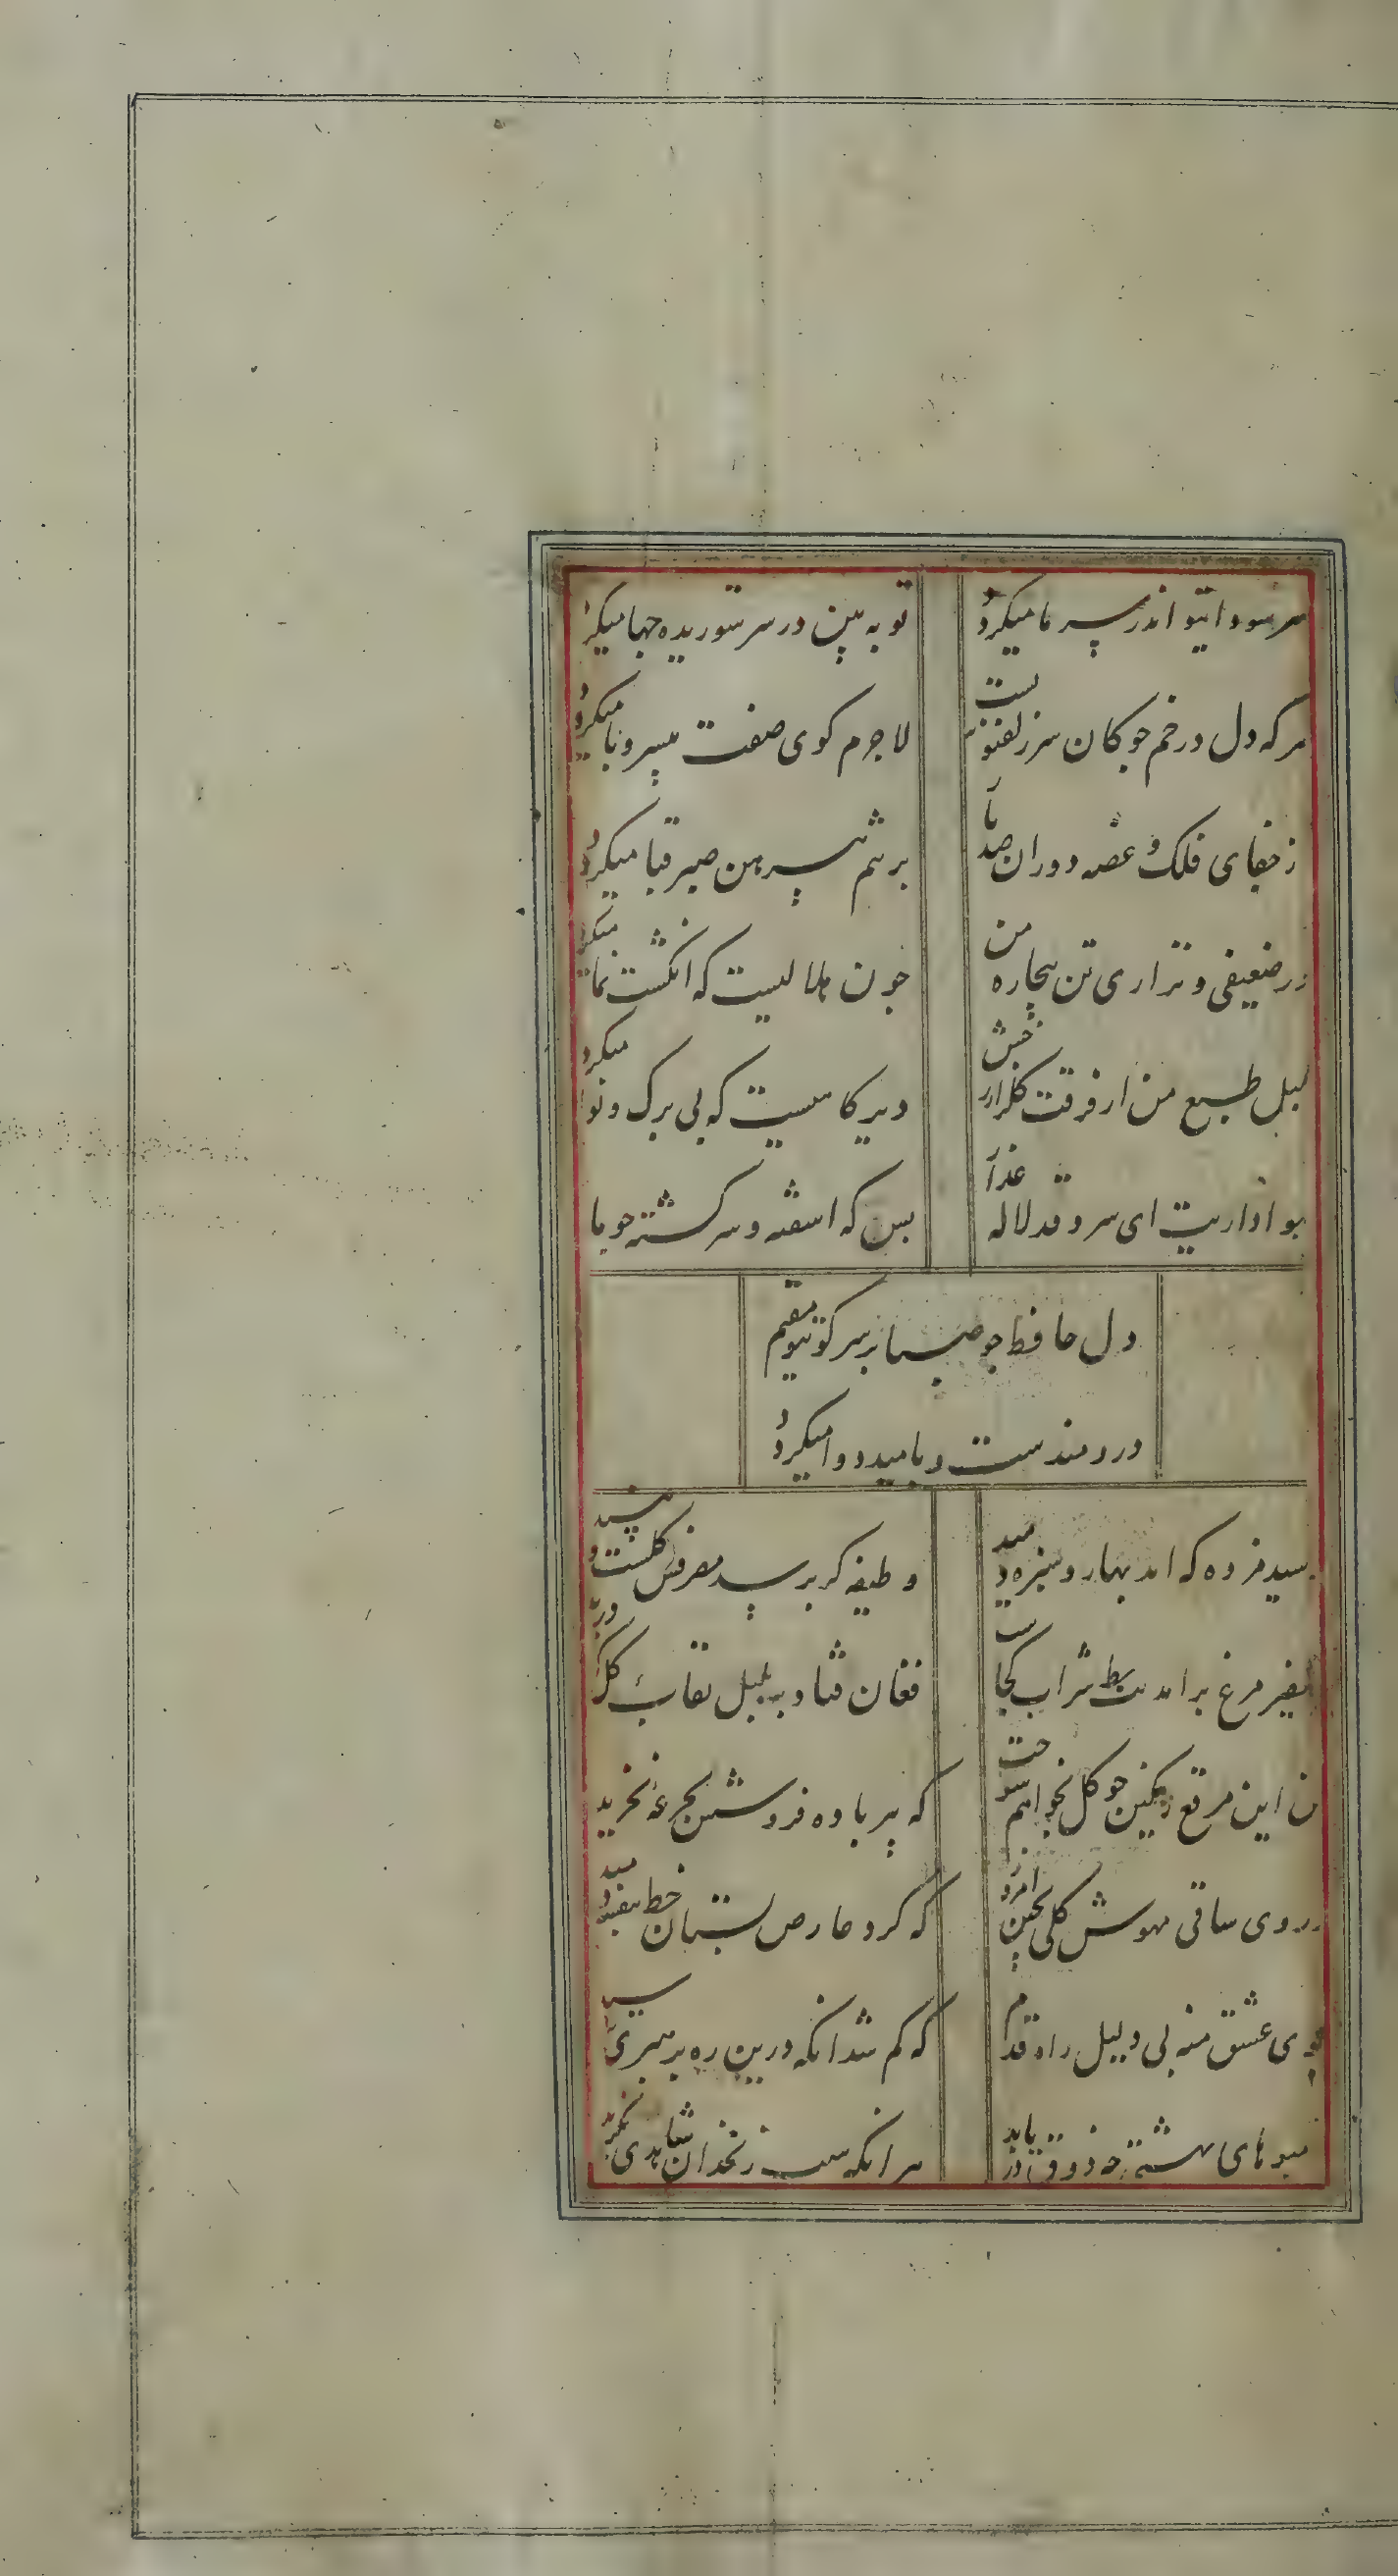 سر سودا تیو اندر سر ما میکردد تو به بین در سر شوریده جها میکردد
هر که دل در خم جوکان سر زلف تو بست لاجرم کوی صفت بیسر و پا میکردد
ز جفای فلک و غصه دوران صد با بر تنم پیرهن صبر قبا میکردد
در ضعیفی و نزاری تن بیچاره من جون هلالیست که انکشت نما میکردد
بلبل طبع من از فرقت کلزار رخش دیر کاهیست که بی برک و نوا میکردد
بهواداریت ای سرو قد لاله عذار بس که اشفته و سرکشته جو با
دل حافظ جو صبا بر سر کوی تو مقیم
دردمندست و بامید دوا میکردد
رسید مژده که امد بهار و سبزه دمید وظیفه کر برسد مصرفش کلست و نبید
صفیر مرغ برامد بط شراب کجاست فغان فتاد به بلبل نقاب کل که درید
من این مرقع رنکین جو کل بخواهم سوخت که پیر باده فروشش بجرعه نخرید
ز روی ساقی مهوش کلی بچین امروز که کرد عارض بستان خط بنفشه دمید
بکوی عشق منه بی دلیل راه قدم که کم شد انکه درین ره برهبری نرسید
ز میوهای بهشتی چه ذوق دریابد هر انکه سیب زنخدان شاهدی نکزید